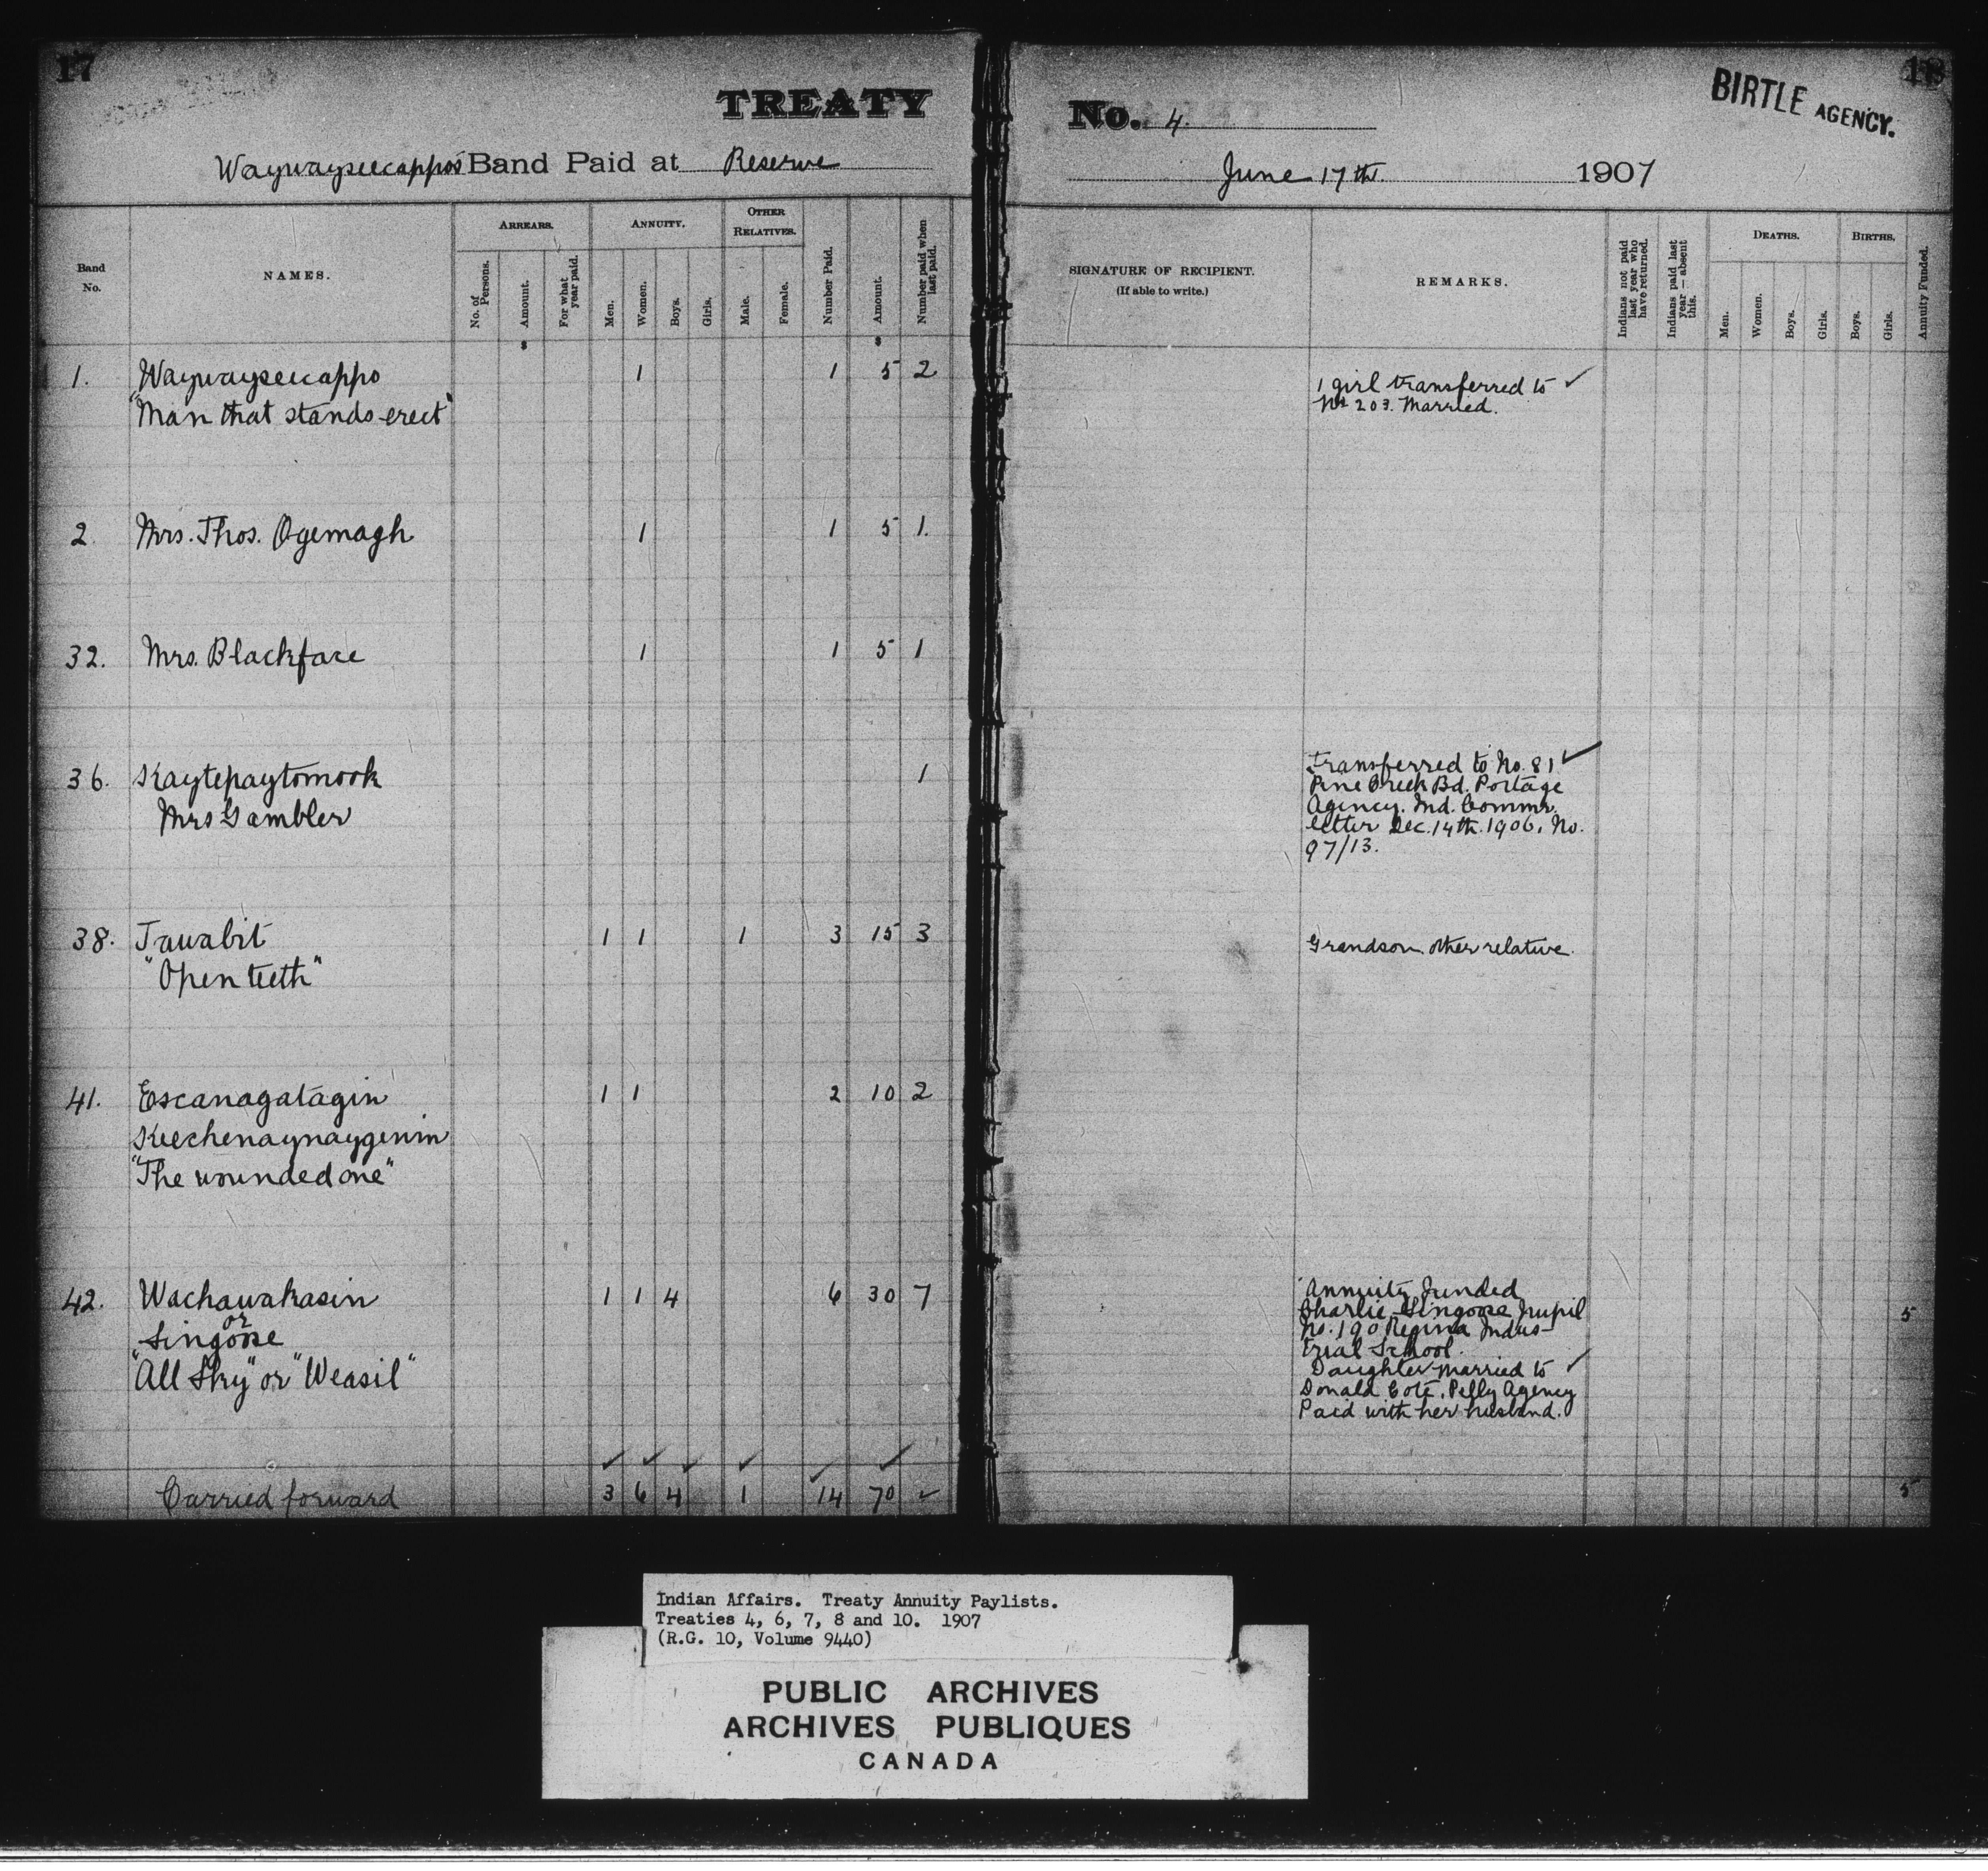 17
18
TREATY No. 4.
BIRTLE AGENCY.
Waywayseecappos Band Paid at Reserve
June 17th. 1907
Band No.
NAMES.
ARREARS.
No. of Persons.
Amount.
For what year paid.
ANNUITY.
Men.
Women.
Boys.
Girls.
OTHER RELATIVES.
Male.
Female.
Number Paid.
Amount.
Number paid when last paid.
SIGNATURE OF RECIPIENT.
(If able to write.)
REMARKS.
Indians not paid last year who have returned.
Indians paid last year — absent this.
DEATHS.
Men.
Women.
Boys.
Girls.
BIRTHS.
Boys.
Girls.
Annuity Funded.
$ $
1. Waywayseecappo 1 1 5 2
"Man that stands erect"
1 girl transferred to ✓
No 203. Married.
2 Mrs. Thos. Ogemagh 1 1 5 1.
32. Mrs. Blackface 1 1 5 1
36. Kaytepaytomook 1
Mrs Gambler
Transferred to No. 81 ✓
Pine Creek Bd. Portage
Agency. Ind. Commr.
letter Dec. 14th. 1906. No.
97/13.
38. Tawabit 1 1 1 3 15 3
"Open teeth"
Grandson other relative.
41. Escanagatagin 1 1 2 10 2
Keechenaynaygenin
"The wounded one"
42. Wachawakasin 1 1 4 6 30 7
or
Singoose
"All Sky" or "Weasil"
Annuity Funded
Charlie Singoose Pupil 5
No. 190 Regina Indus-
trial School.
Daughter married to ✓
Donald Cote, Pelly Agency
Paid with her husband.
✓ ✓ ✓ ✓ ✓ ✓
Carried forward 3 6 4 1 14 70 ✓ 5
Indian Affairs. Treaty Annuity Paylists.
Treaties 4, 6, 7, 8 and 10. 1907
(R.G. 10, Volume 9440)
PUBLIC ARCHIVES
ARCHIVES PUBLIQUES
CANADA